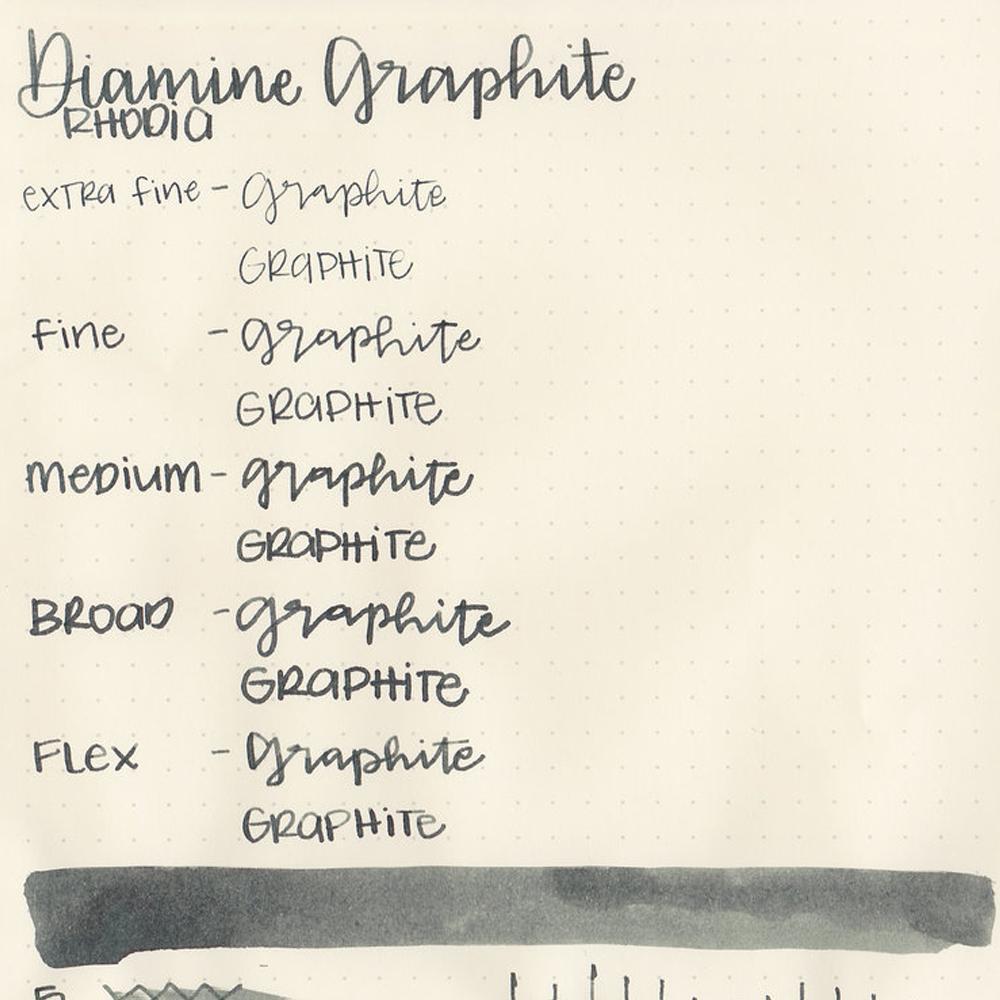 Diamine Graphite
RHODIA
extra fine - graphite
GRAPHITE
fine - graphite
GRAPHITE
medium - graphite
GRAPHITE
BROAD - graphite
GRAPHITE
FLex - Graphite
GRAPHITE